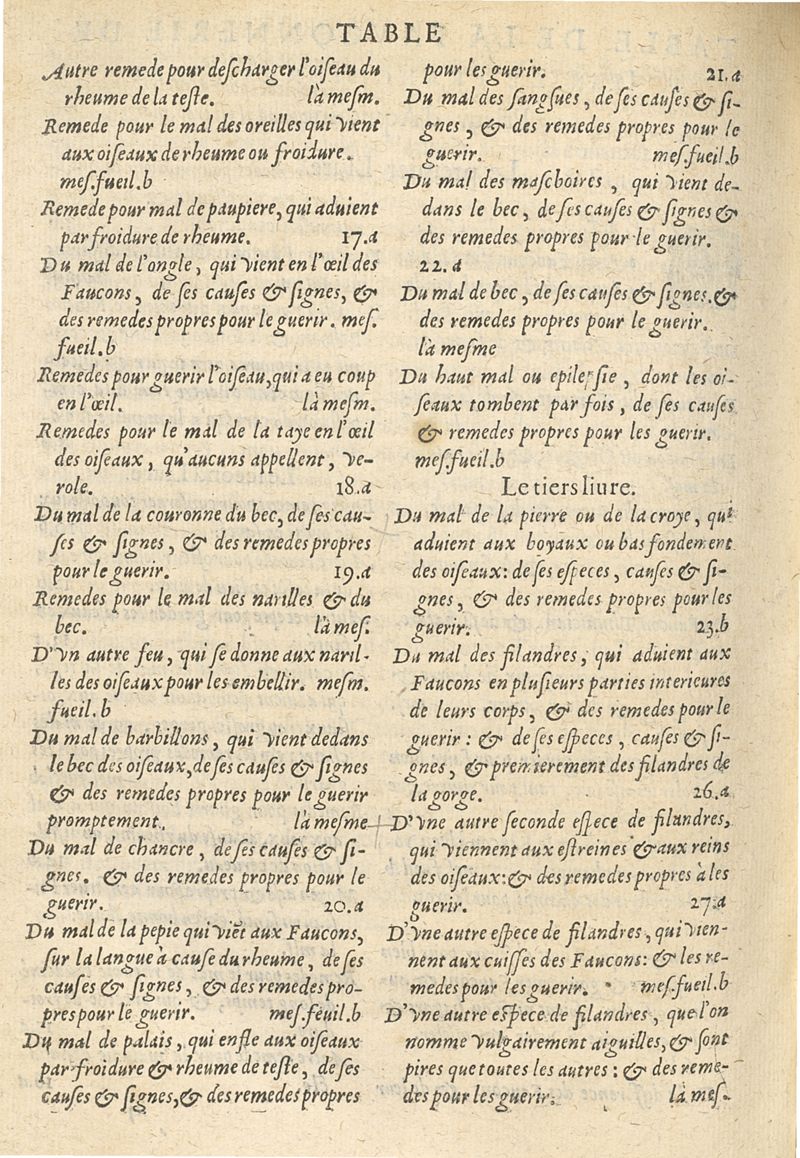 TABLE
Autre remede pour descharger l'oiseau du
rheume de la teste. là mesm.
Remede pour le mal des oreilles qui vient
aux oiseaux de rheume ou froidure.
mes.fueil.b
Remede pour mal de paupiere, qui aduient
par froidure de rheume. 17.a
Du mal de l'ongle, qui vient en l'œil des
Faucons, de ses causes & signes, &
des remedes propres pour le guerir. mes.
fueil.b
Remedes pour guerir l'oiseau, qui a eu coup
en l'œil. là mesm.
Remedes pour le mal de la taye en l'œil
des oiseaux, qu'aucuns appellent, ve-
role. 18.a
Du mal de la couronne du bec, de ses cau-
ses & signes, & des remedes propres
pour le guerir. 19.a
Remedes pour le mal des narilles & du
bec. là mes.
D'vn autre feu, qui se donne aux naril-
les des oiseaux pour les embellir. mesm.
fueil.b
Du mal de barbillons, qui vient dedans
le bec des oiseaux, de ses causes & signes
& des remedes propres pour le guerir
promptement. là mesme
Du mal de chancre, de ses causes & si-
gnes. & des remedes propres pour le
guerir. 20.a
Du mal de la pepie qui viẽt aux Faucons,
sur la langue à cause du rheume, de ses
causes & signes, & des remedes pro-
pres pour le guerir. mes.feuil.b
Du mal de palais, qui enfle aux oiseaux
par froidure & rheume de teste, de ses
causes & signes, & des remedes propres
pour les guerir. 21.a
Du mal des sangsues, de ses causes & si-
gnes, & des remedes propres pour le
guerir. mes.fueil.b
Du mal des maschoires, qui vient de-
dans le bec, de ses causes & signes &
des remedes propres pour le guerir.
22.a
Du mal de bec, de ses causes & signes. &
des remedes propres pour le guerir.
là mesme
Du haut mal ou epilepsie, dont les oi-
seaux tombent par fois, de ses causes
& remedes propres pour les guerir.
mes.fueil.b
Le tiers liure.
Du mal de la pierre ou de la croye, qui
aduient aux boyaux ou bas fondement
des oiseaux: de ses especes, causes & si-
gnes, & des remedes propres pour les
guerir. 23.b
Du mal des filandres, qui aduient aux
Faucons en plusieurs parties interieures
de leurs corps, & des remedes pour le
guerir: & de ses especes, causes & si-
gnes, & premierement des filandres de
la gorge. 26.a
D'vne autre seconde espece de filandres,
qui viennent aux estreines & aux reins
des oiseaux: & des remedes propres à les
guerir. 27.a
D'vne autre espece de filandres, qui vien-
nent aux cuisses des Faucons: & les re-
medes pour les guerir. mes.fueil.b
D'vne autre espece de filandres, que l'on
nomme vulgairement aiguilles, & sont
pires que toutes les autres: & des reme-
des pour les guerir. là mes.